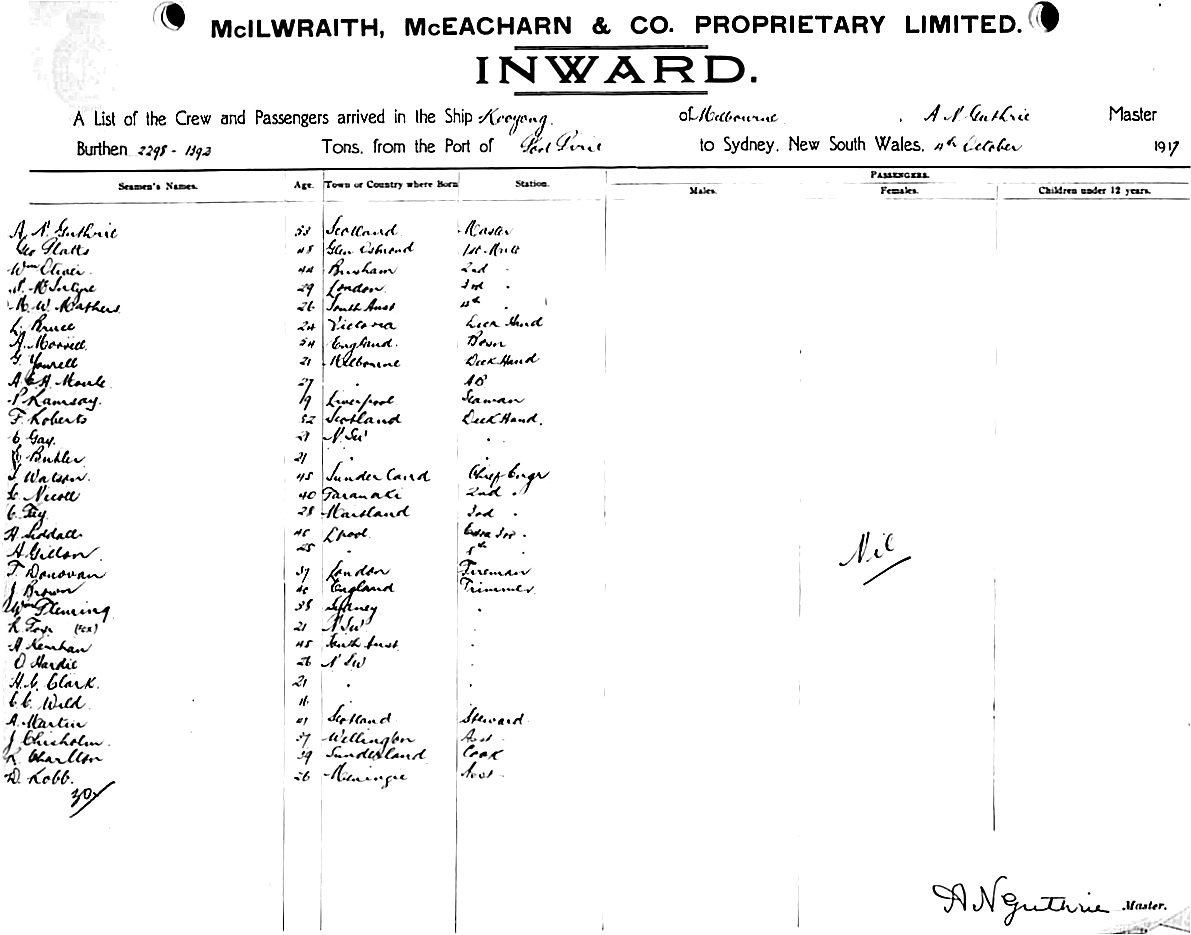 McILWRAITH, McEACHARN & CO. PROPRIETARY LIMITED.
INWARD.
A List of the Crew and Passengers arrived in the Ship Kooyong. of Melbourne. A N Guthrie Master
Burthen 2298 - 1392 Tons, from the Port of Port Pirie to Sydney, New South Wales, 4th October 1917
Seamen's Names. Age. Town or Country where Born Station. PASSENGERS.
Males. Females. Children under 12 years.
A N Guthrie 53 Scotland Master
Geo Platts 48 Glen Osmond 1st Mate
Wm 44 2nd "
McIntyre 29 London 3rd "
W. Mathers 26 South Aust 4th "
L. Bruce 24 Victoria Deck Hand
A. Morrell 54 England. Bosn
G. Yourell 21 Melbourne Deck Hand
A E A. 27 " AB
Ramsay. 19 Liverpool Seaman
F. Roberts 52 Scotland Deck Hand.
C Gay. 21 N.SW "
Butler 21 " "
Watson. 45 Sunderland Chief Engr
Nicoll 40 Taranaki 2nd "
C. Fay 28 Maitland 3rd "
A Siddall L'pool.
A Gillon " 5th
T. Donovan 37 London Fireman
J Brown England Trimmer
Wm Fleming 38 Sydney "
R. (Fox) 21 N SW "
A 45 South Aust. "
O Hardie 26 N SW "
H. C. Clark. 21 " "
C C. Wild. "
A. Martin 41 Scotland Steward
J Chisholm. 37 Wellington Asst
Charlton 39 Sunderland Cook
D. Robb. 26 Meningie Asst
30
Nil
A N Guthrie Master.